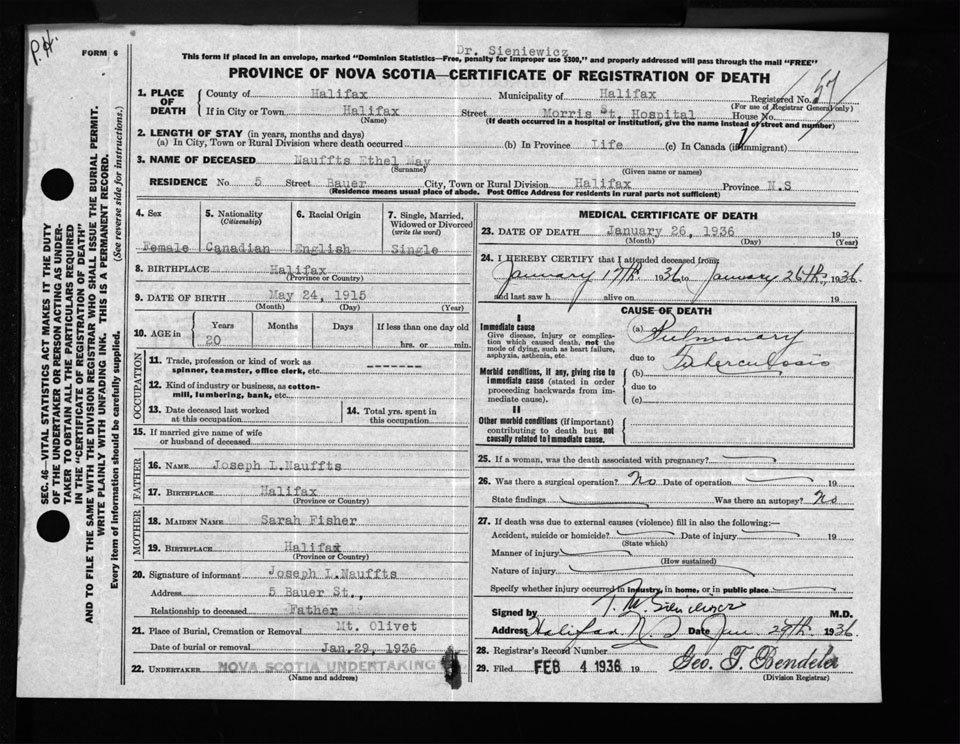 P.H.
FORM 6
Dr. Sieniewicz
This form if placed in an envelope, marked "Dominion Statistics—Free, penalty for improper use $300," and properly addressed will pass through the mail "FREE"
PROVINCE OF NOVA SCOTIA—CERTIFICATE OF REGISTRATION OF DEATH
1. PLACE OF DEATH
County of Halifax Municipality of Halifax Registered No. 57
(For use of Registrar General only)
If in City or Town Halifax Street Morris St. Hospital House No.
(Name) (If death occurred in a hospital or institution, give the name instead of street and number)
2. LENGTH OF STAY (in years, months and days)
(a) In City, Town or Rural Division where death occurred (b) In Province Life (c) In Canada (if immigrant)
3. NAME OF DECEASED Nauffts Ethel May
(Surname) (Given name or names)
RESIDENCE No. 5 Street Bauer City, Town or Rural Division Halifax Province N.S
(Residence means usual place of abode. Post Office Address for residents in rural parts not sufficient)
4. Sex
Female
5. Nationality
(Citizenship)
Canadian
6. Racial Origin
English
7. Single, Married, Widowed or Divorced
(write the word)
Single
8. BIRTHPLACE Halifax
(Province or Country)
9. DATE OF BIRTH May 24, 1915
(Month) (Day) (Year)
10. AGE in
Years Months Days If less than one day old
20 hrs. or min.
OCCUPATION
11. Trade, profession or kind of work as spinner, teamster, office clerk, etc. -------
12. Kind of industry or business, as cotton-mill, lumbering, bank, etc.
13. Date deceased last worked at this occupation
14. Total yrs. spent in this occupation
15. If married give name of wife or husband of deceased
FATHER
16. NAME Joseph L.Nauffts
17. BIRTHPLACE Halifax
(Province or Country)
MOTHER
18. MAIDEN NAME Sarah Fisher
19. BIRTHPLACE Halifax
(Province or Country)
20. Signature of informant Joseph L.Nauffts
Address 5 Bauer St.,
Relationship to deceased Father
21. Place of Burial, Cremation or Removal Mt. Olivet
Date of burial or removal Jan.29, 1936
22. UNDERTAKER NOVA SCOTIA UNDERTAKING
(Name and address)
MEDICAL CERTIFICATE OF DEATH
23. DATE OF DEATH January 26, 1936 19
(Month) (Day) (Year)
24. I HEREBY CERTIFY that I attended deceased from
January 17th. 1936 to January 26th., 1936.
and last saw h alive on 19
CAUSE OF DEATH
I
Immediate cause
Give disease, injury or complication which caused death, not the mode of dying, such as heart failure, asphyxia, asthenia, etc.
(a) Pulmonary
due to Tuberculosis
Morbid conditions, if any, giving rise to immediate cause (stated in order proceeding backwards from immediate cause).
(b)
due to
(c)
II
Other morbid conditions (if important) contributing to death but not causally related to immediate cause.
25. If a woman, was the death associated with pregnancy?
26. Was there a surgical operation? No Date of operation 19
State findings Was there an autopsy? No
27. If death was due to external causes (violence) fill in also the following:—
Accident, suicide or homicide? Date of injury 19
(State which)
Manner of injury
(How sustained)
Nature of injury
Specify whether injury occurred in industry, in home, or in public place
Signed by T. M. Sieniewicz M.D.
Address Halifax N.S Date Jan. 29th. 1936.
28. Registrar's Record Number
29. Filed FEB 4 1936 19 Geo. T. Bendeler
(Division Registrar)
SEC. 46—VITAL STATISTICS ACT MAKES IT THE DUTY
OF THE UNDERTAKER OR PERSON ACTING AS UNDER-
TAKER TO OBTAIN ALL THE PARTICULARS REQUIRED
IN THE "CERTIFICATE OF REGISTRATION OF DEATH"
AND TO FILE THE SAME WITH THE DIVISION REGISTRAR WHO SHALL ISSUE THE BURIAL PERMIT.
WRITE PLAINLY WITH UNFADING INK. THIS IS A PERMANENT RECORD.
Every item of information should be carefully supplied. (See reverse side for instructions.)